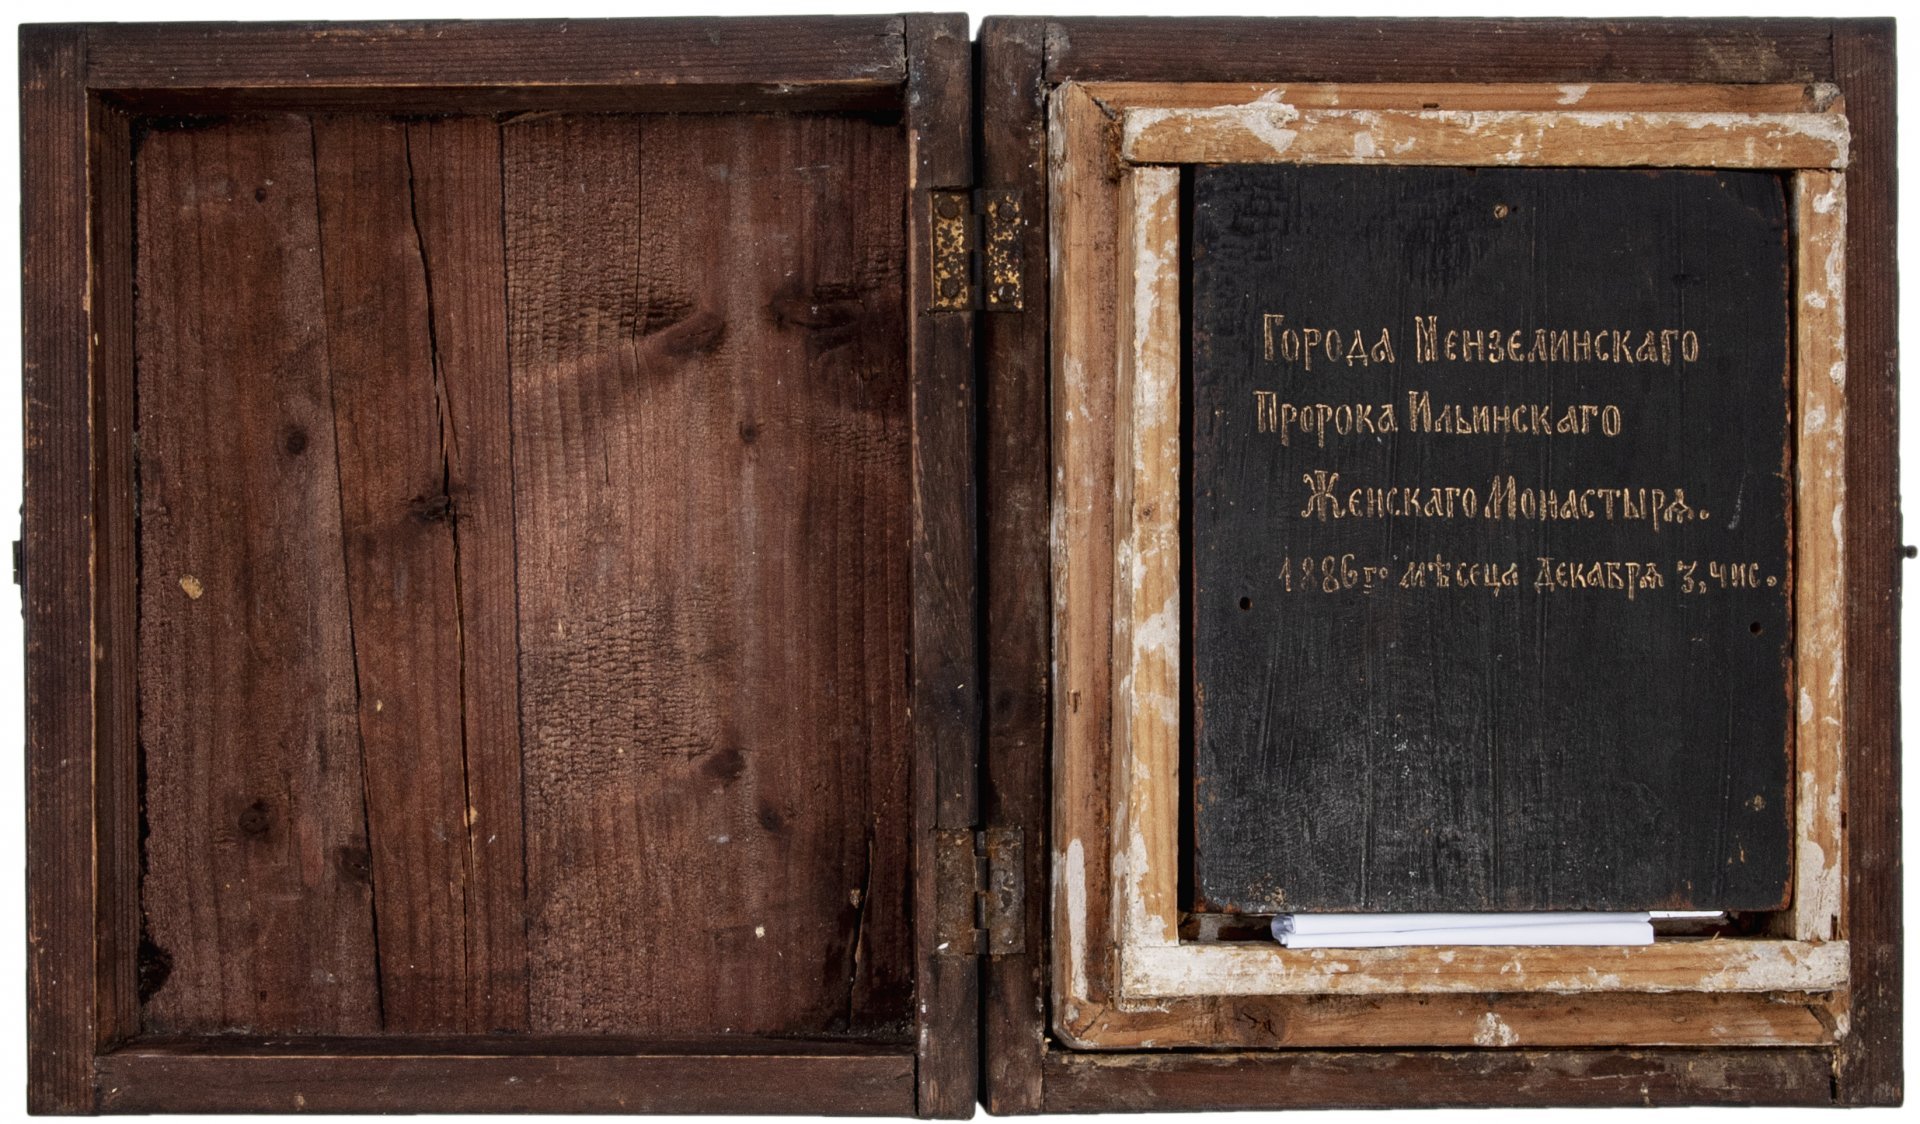 Города Мензелинскаго
Пророка Ильинскаго
Женскаго Монастырѧ.
1886го мѣсеца Декабрѧ 3, чис.